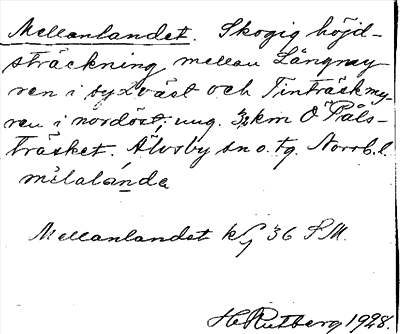 Mellanlandet. Skogig höjd-
sträckning mellan Långmy-
ren i sydväst och Tinträskmy-
ren i nordöst; ung. 3 km Ö Påls-
träsket. Älvsby sn o. tg. Norrb. l.
milalånda
Mellanlandet kfj 36 S.M.
H. Rutberg 1928.